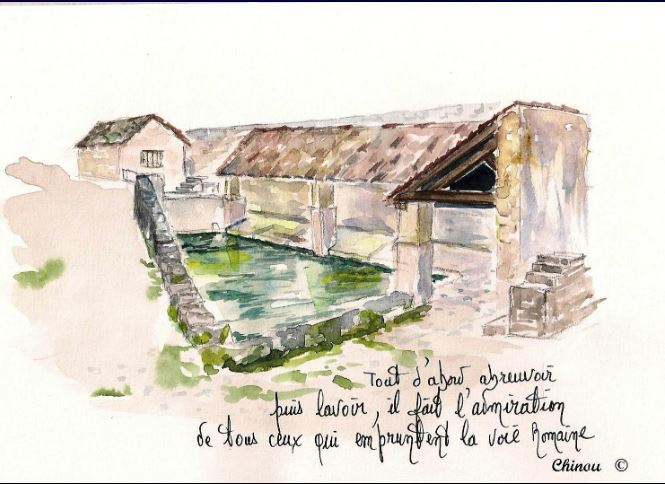 Tout d'abord abreuvoir
puis lavoir, il fait l'admiration
de tous ceux qui empruntent la voie Romaine
Chinou ©